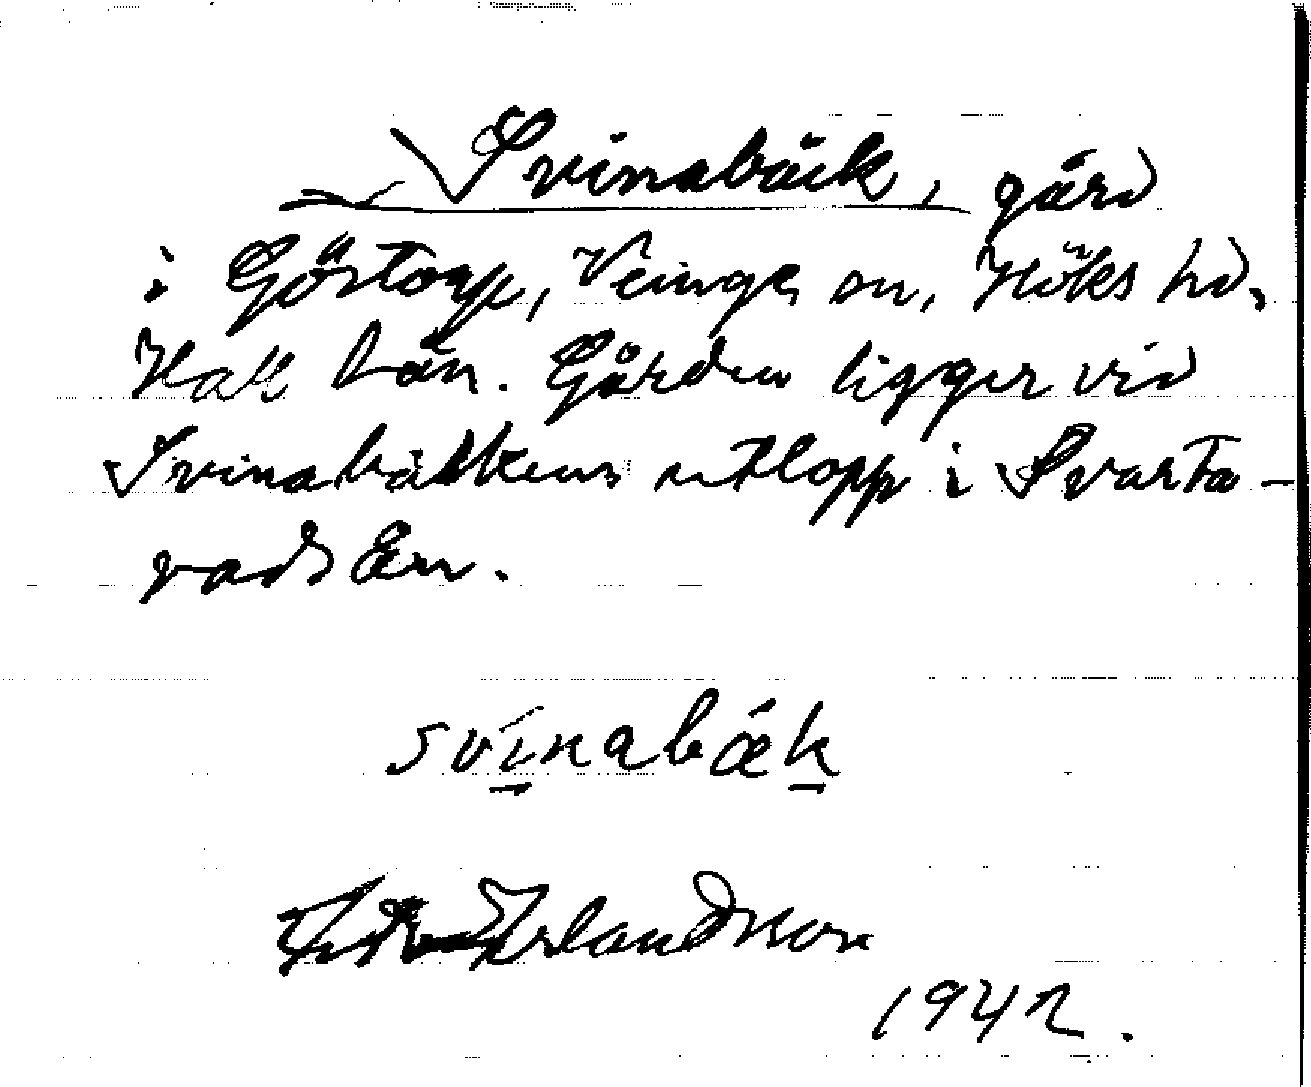 Svinabäck, gård
i Göstorp, Veinge sn, Höks hd,
Hall. län. Gården ligger vid
Svinabäckens utlopp i Svarta-
vadsån.
svinabæk
Erlandsson
1942.